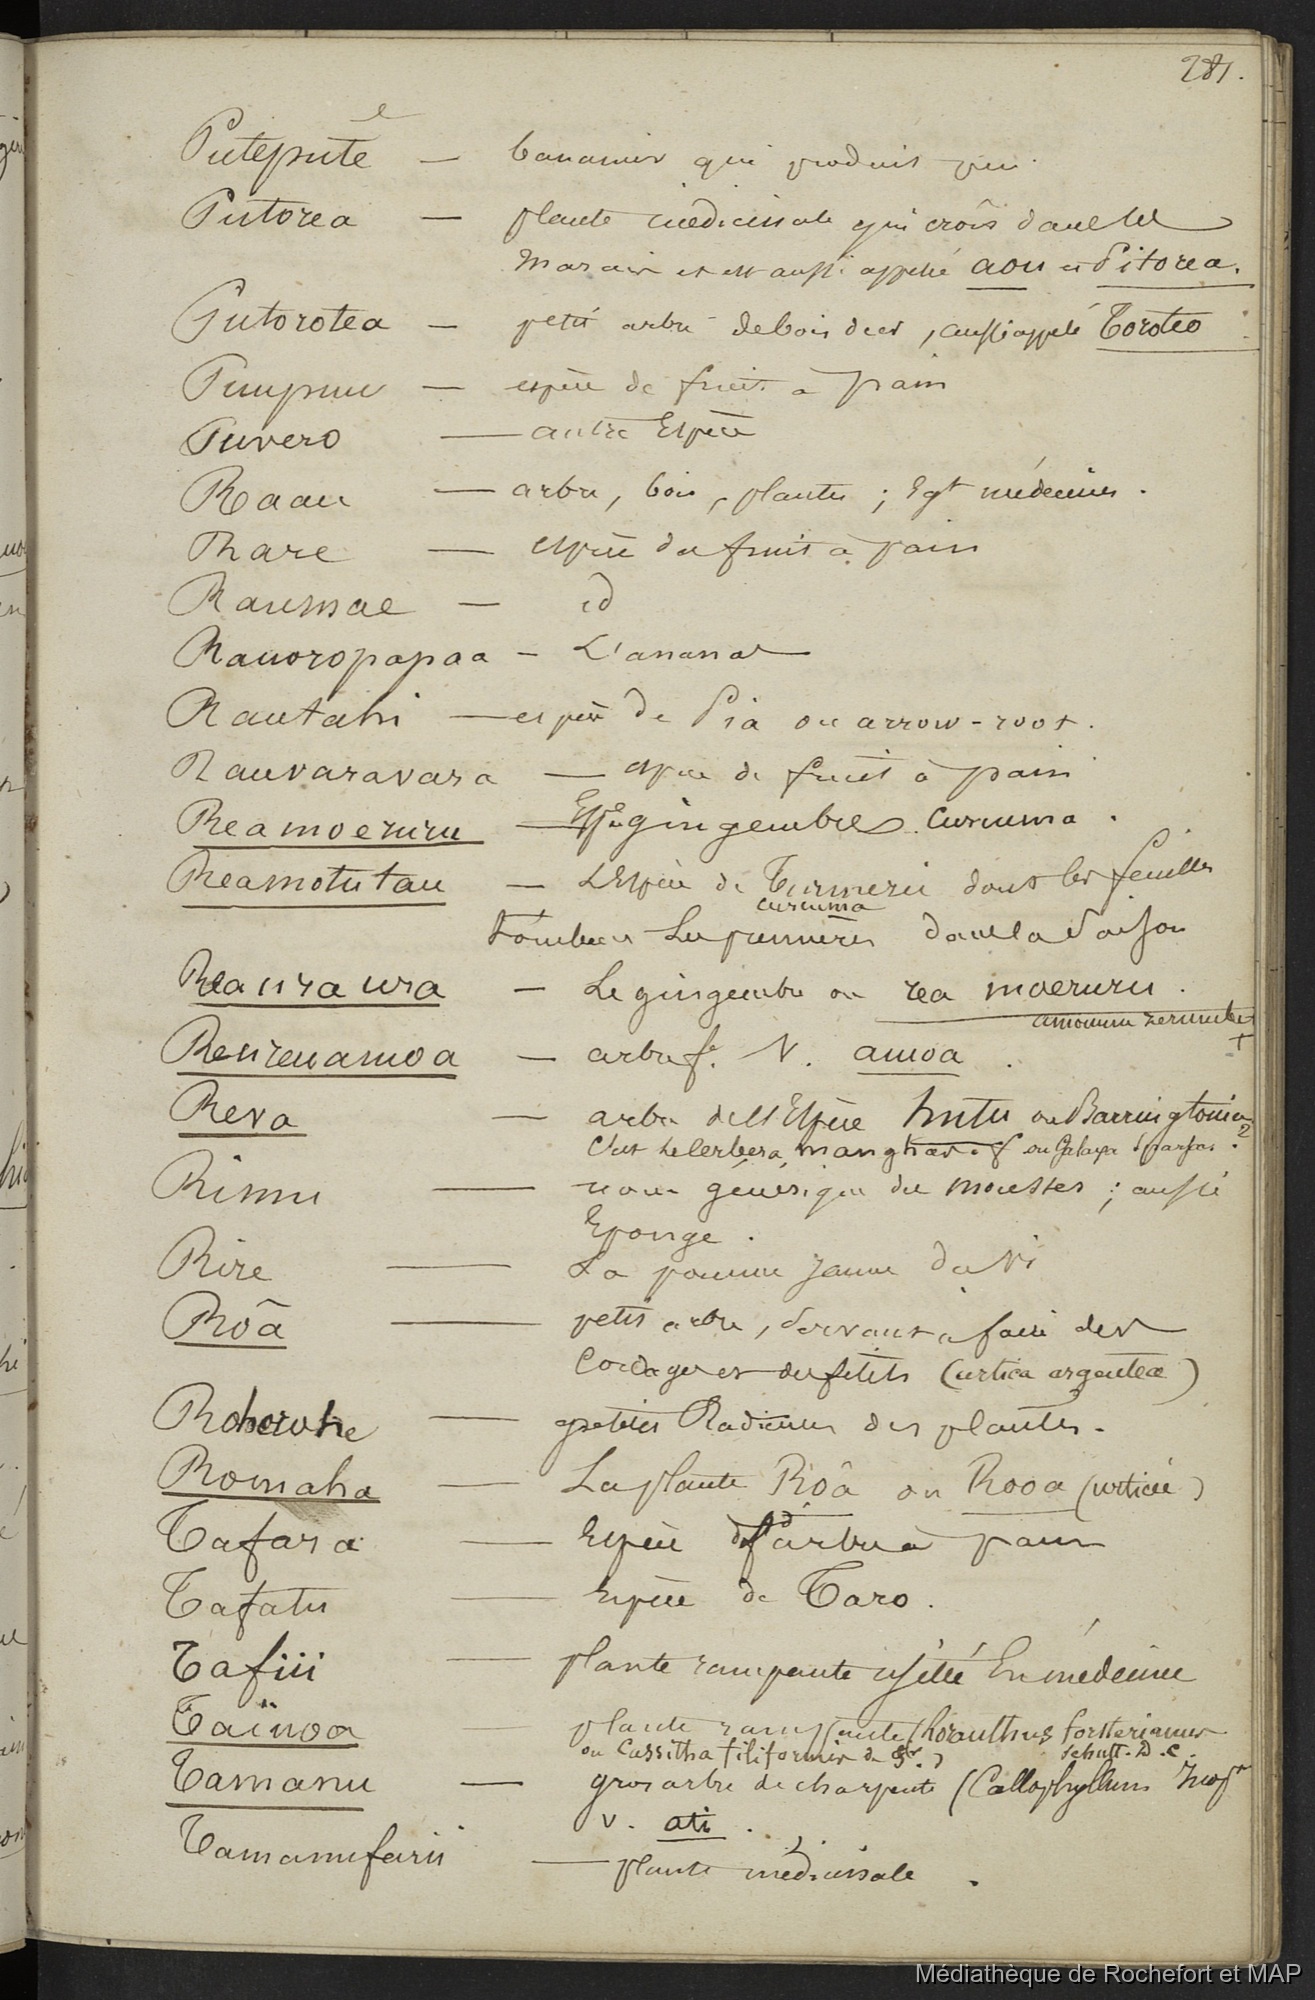 281.
Putepute — bananier qui produit peu.
Putorea — plante médicinale qui croît dans les
marais et est aussi appelé aou et Pitorea.
Putorotea — petit arbre de bois dur, aussi appelé Toroteo
Puupuu — espèce de fruit à pain
Puvero — autre Espèce
Raau — arbre, bois, plantes ; Egt médecines.
Rare — espèce de fruit à pain
Raumae — id
Rauoropapaa — L'ananas
Rautahi — espèce de Pia ou arrow-root.
Rauvaravara — espèce de fruit à pain
Reamoeruru — gingembre. Curcuma.
Reamotutau — L'Espèce de Turmeric dont les feuilles
curcuma
tombent Les premières dans la Saison
Reauraura — Le gingembre ou rea moeruru.
amomum zerumbet +
Reureuamoa — arbuste. V. amoa.
Reva — arbre de l'Espèce hutu ou Barringtonia
C'est le Cerbera manghas f ou ?
Rimu — nom générique des mousses ; aussi
Eponge.
Rire — La pomme jaune du Vi
Rôâ — petit arbre, servant à faire des
Cordages et des filets (urtica argentea)
— petites Radicules des plantes.
Romaha — La plante Rôâ ou Rooa (urticée)
Tafara — Espèce d'arbre à pain
Tafatu — Espèce de Taro.
Tafiii — plante rampante usitée En médecine
Taïnoa — plante rampante (Loranthus forsterianus
ou Cassitha filiformis de ) Schult. D.C.
Tamanu — gros arbre de charpente (Callophyllum Inoph
V. ati.
Tamanufarii — plante médicinale.
Médiathèque de Rochefort et MAP